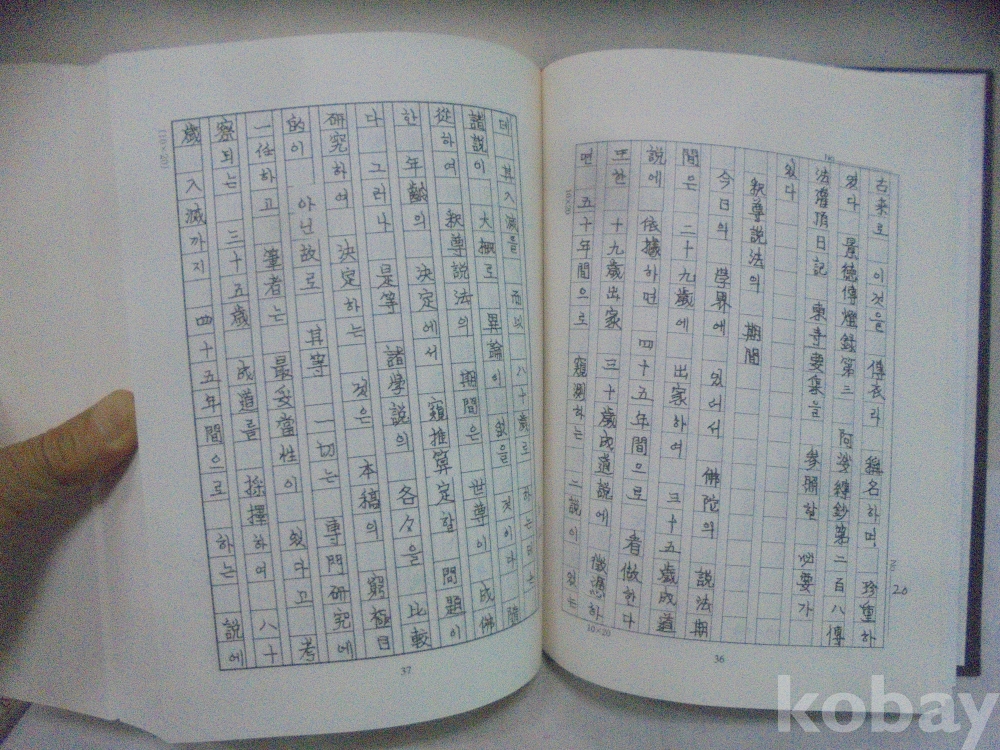 古来로 이것을 傳衣라 稱名하며 珍重하
였다 景德傳燈錄第三 阿娑縛鈔第二百八傳
法灌頂日記 東寺要集을 參照할 必要가
있다
釈尊説法의 期間
今日의 學界에 있어서 佛陀의 説法期
間은 二十九歲에 出家하여 三十五歲成道
説에 依據하면 四十五年間으로 看做한다
또한 十九歲出家 三十歲成道説에 徵憑하
면 五十年間으로 窺測하는 二説이 있는
20
10×20
10×20
36
데 其入滅을 八十歲로
諸説이 大概로 異論이 없을 것이다 隨
從하여 釈尊説法의 期間은 世尊이 成佛
한 年齡의 決定에서 窺推算定할 問題이
다 그러나 是等 諸學説의 各々을 比較
研究하여 決定하는 것은 本稿의 窮極目
的이 아닌故로 其等 一切는 専門研究에
一任하고 筆者는 最妥當性이 있다고 考
察되는 三十五歲 成道를 採擇하여 八十
歲 入滅까지 四十五年間으로 하는 説에
(10×20)
37
kobay